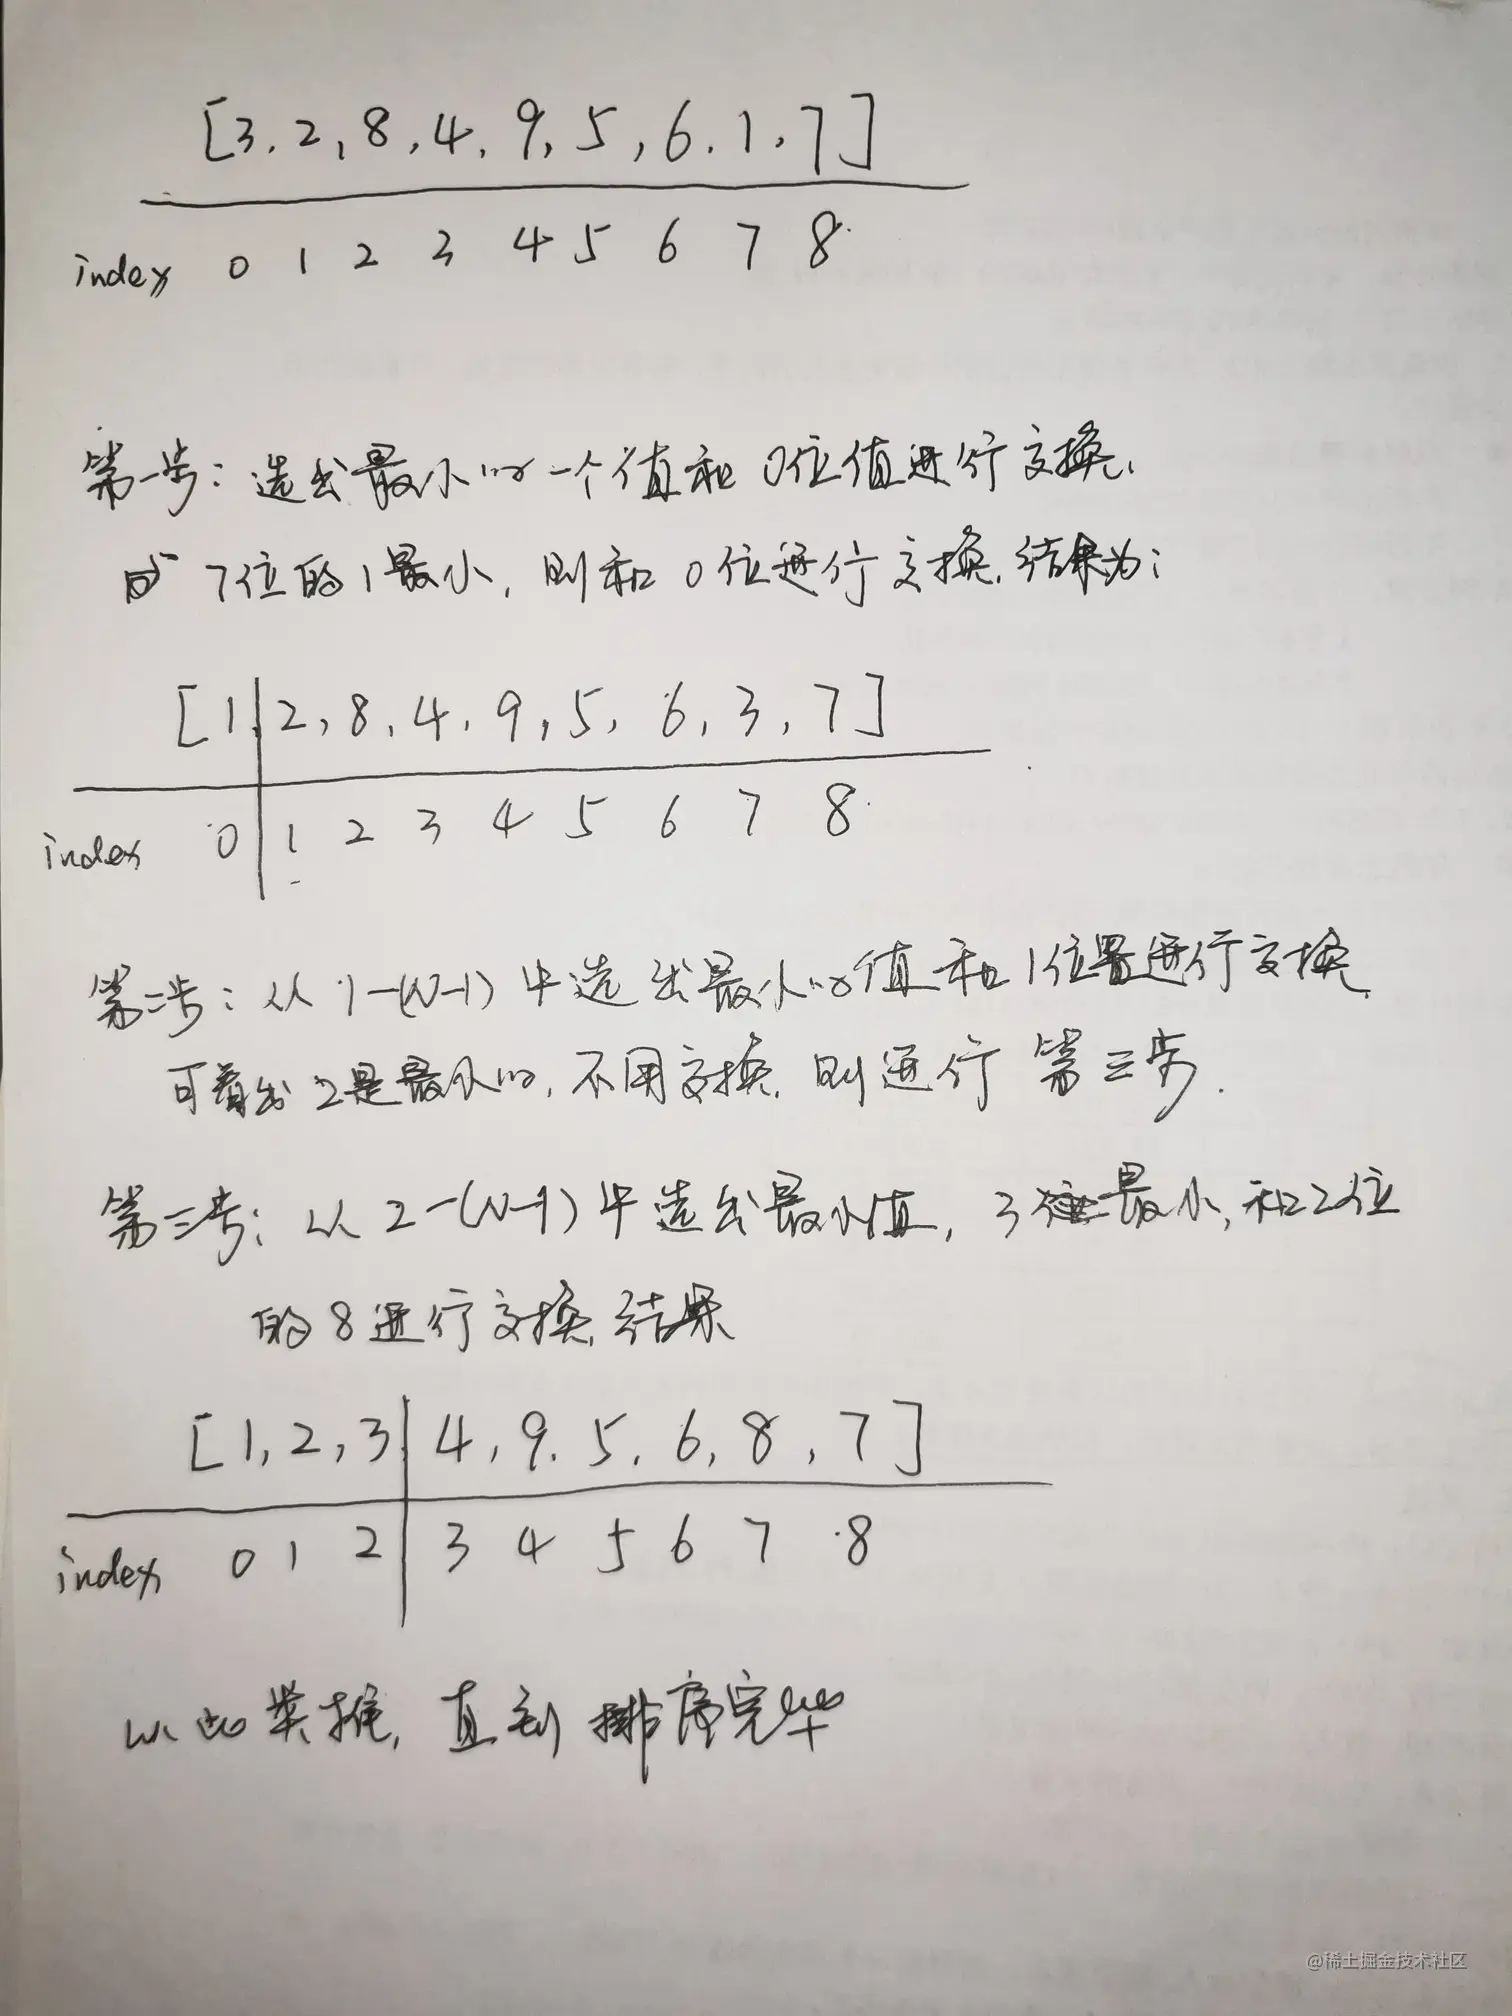 [3, 2, 8, 4, 9, 5, 6, 1, 7]
index 0 1 2 3 4 5 6 7 8
第一步：选出最小的一个值和0位值进行交换,
由 7位的1最小, 则和0位进行交换, 结果为:
[1, 2, 8, 4, 9, 5, 6, 3, 7]
index 0 1 2 3 4 5 6 7 8
第二步：从 1-(N-1) 中选出最小的值和1位置进行交换,
可看出2是最小的, 不用交换, 则进行 第三步.
第三步: 从 2-(N-1) 中选出最小值, 3 最小, 和2位
的8进行交换, 结果
[1, 2, 3, 4, 9, 5, 6, 8, 7]
index 0 1 2 3 4 5 6 7 8
以此类推, 直到排序完毕
@稀土掘金技术社区